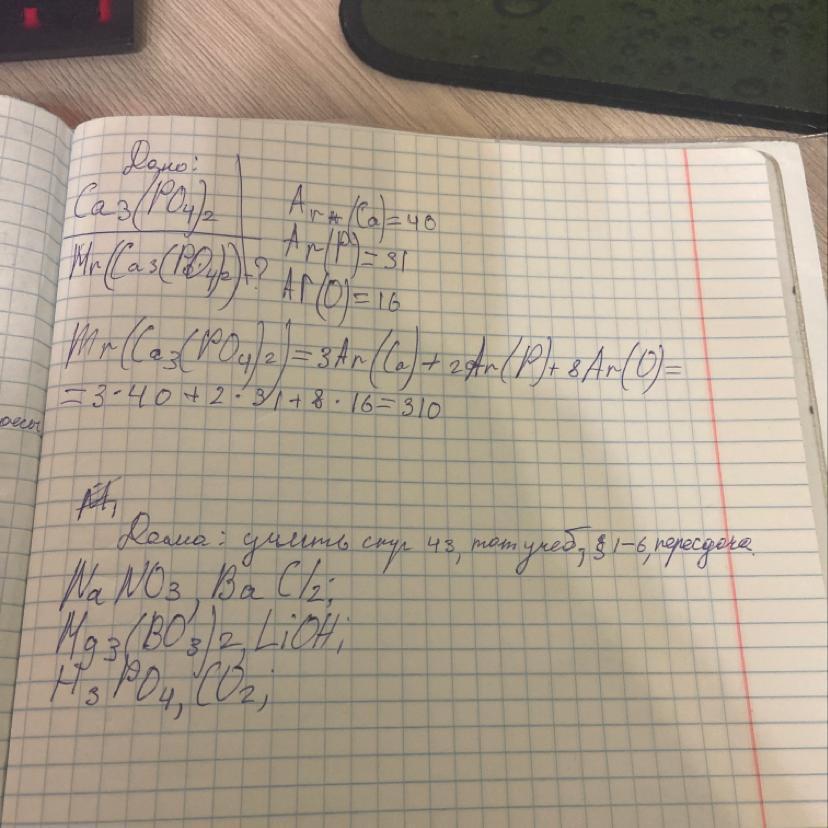 Дано:
Ca3(PO4)2
Ar(Ca)=40
Mr(Ca3(PO4)2)-?
Ar(P)=31
Ar(O)=16
Mr(Ca3(PO4)2)=3Ar(Ca)+2Ar(P)+8Ar(O)=
=3·40+2·31+8·16=310
Дома: учить стр 43, тот учеб, § 1-6, пересдача.
NaNO3, BaCl2;
Mg3(BO3)2, LiOH;
H3PO4, CO2;